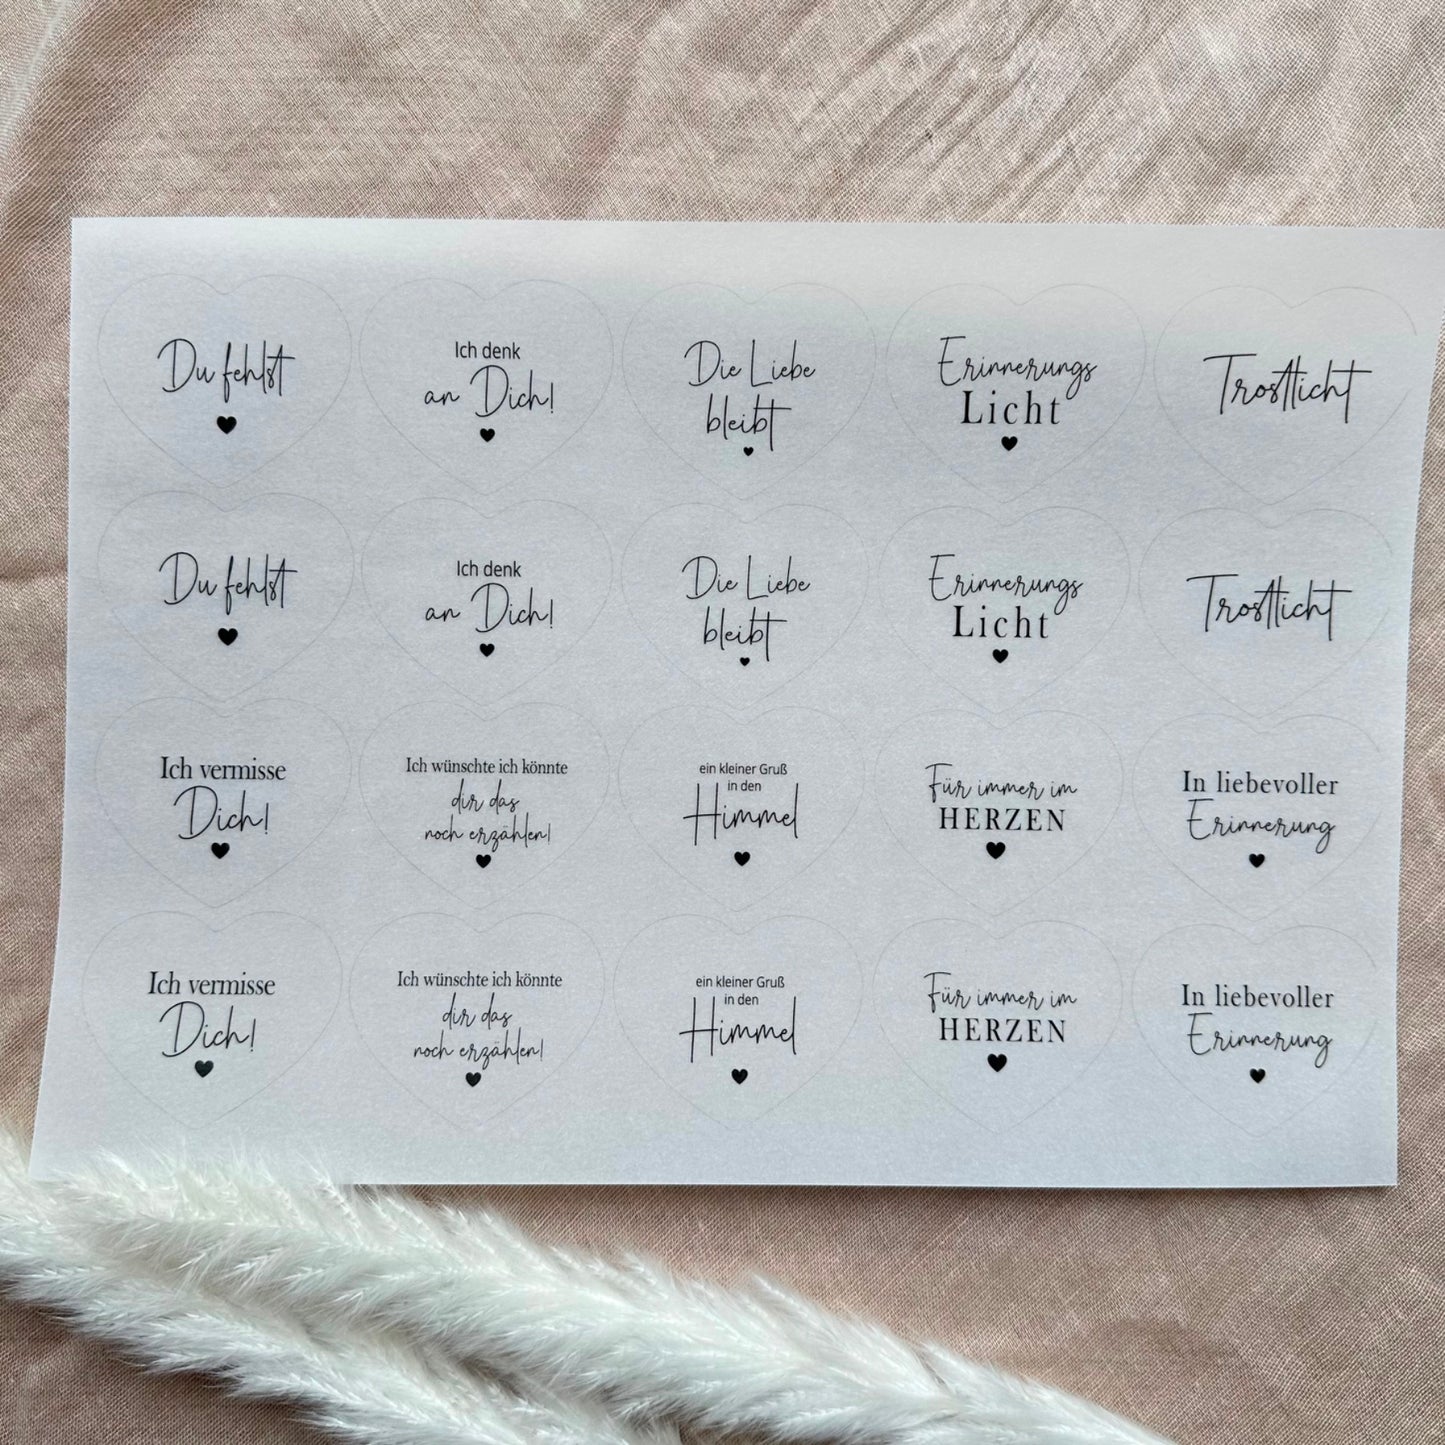 Du fehlst
Ich denk
an Dich!
Die Liebe
bleibt
Erinnerungs
Licht
Trostlicht
Du fehlst
Ich denk
an Dich!
Die Liebe
bleibt
Erinnerungs
Licht
Trostlicht
Ich vermisse
Dich!
Ich wünschte ich könnte
dir das
noch erzählen!
ein kleiner Gruß
in den
Himmel
Für immer im
HERZEN
In liebevoller
Erinnerung
Ich vermisse
Dich!
Ich wünschte ich könnte
dir das
noch erzählen!
ein kleiner Gruß
in den
Himmel
Für immer im
HERZEN
In liebevoller
Erinnerung